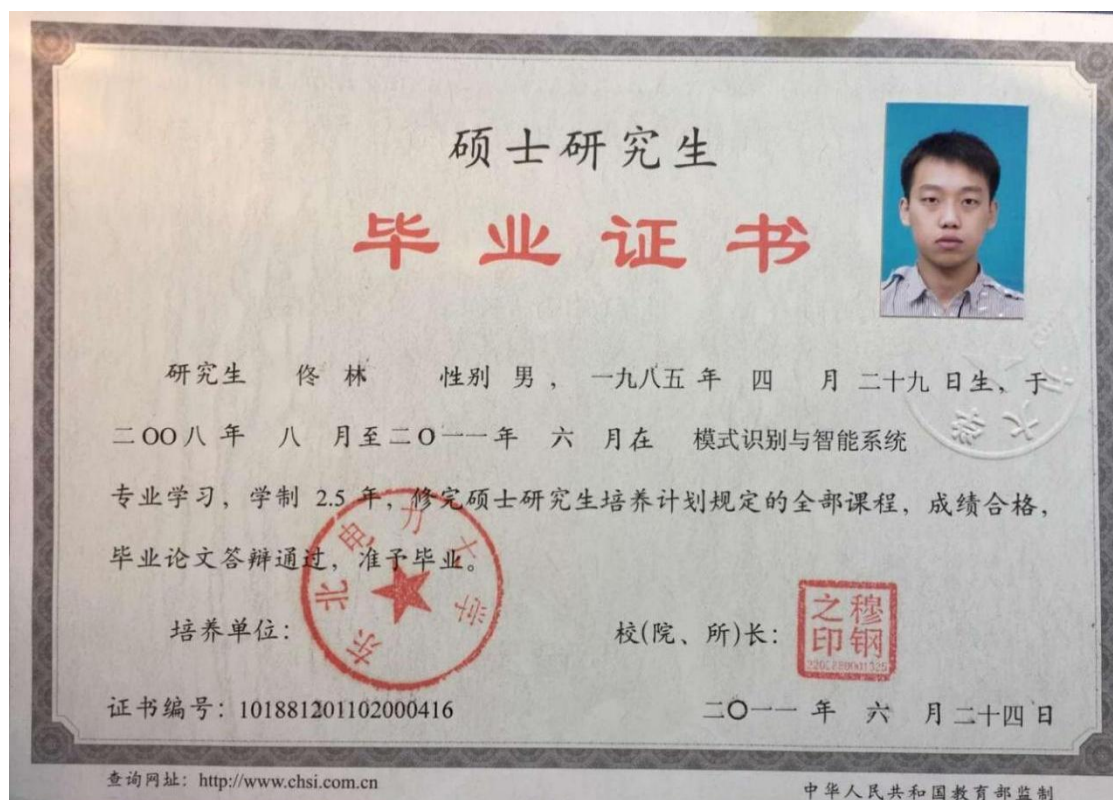 硕士研究生
毕业证书
研究生 佟林 性别 男， 一九八五 年 四 月 二十九 日生，于
二OO八 年 八 月至二O一一年 六 月在 模式识别与智能系统
专业学习，学制 2.5 年，修完硕士研究生培养计划规定的全部课程，成绩合格，
毕业论文答辩通过，准予毕业。
东北电力大学
培养单位：
校(院、所)长：
穆钢之印
证书编号：101881201102000416
二O一一 年 六 月二十四日
查询网址：http://www.chsi.com.cn
中华人民共和国教育部监制